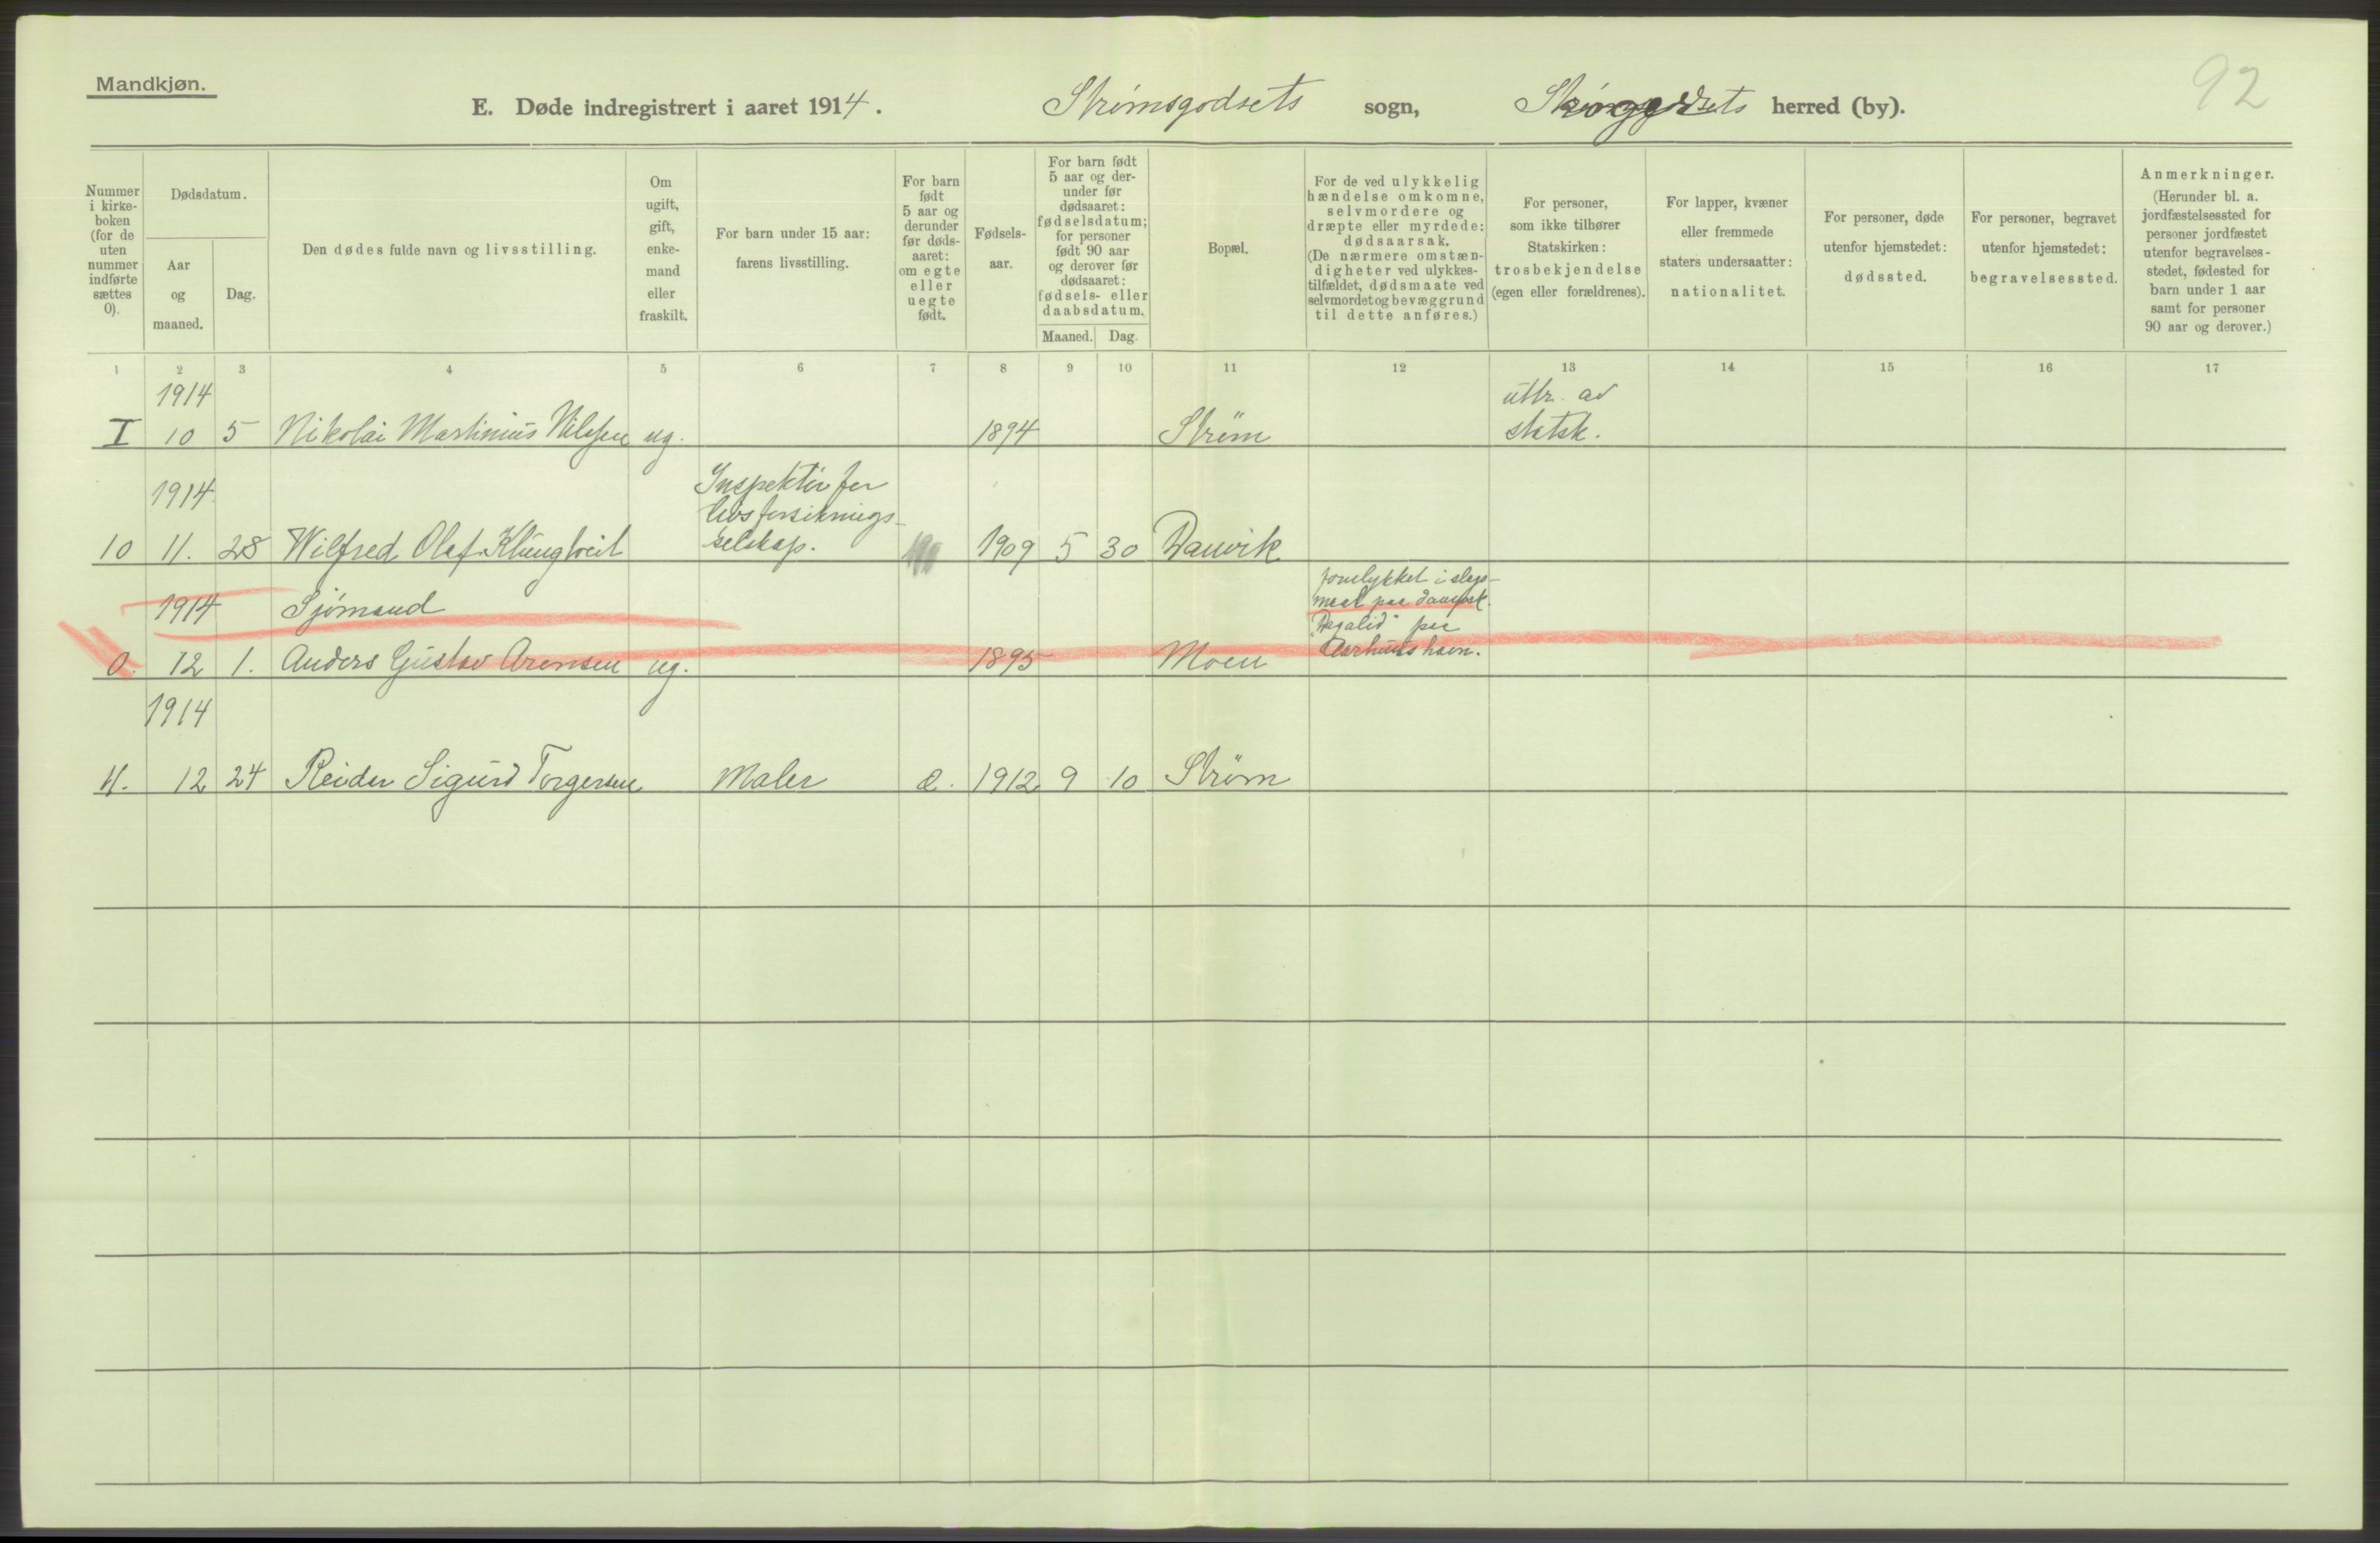 Mandkjøn.
92
E. Døde indregistrert i aaret 1914. Strømsgodsets sogn, herred (by).
Nummer i kirke-boken (for de uten nummer indførte sættes 0).
Dødsdatum.
Aar og maaned.
Dag.
Den dødes fulde navn og livsstilling.
Om ugift, gift, enke-mand eller fraskilt.
For barn under 15 aar: farens livsstilling.
For barn født 5 aar og derunder før døds-aaret: om egte eller uegte født.
Fødsels-aar.
For barn født 5 aar og der-under før dødsaaret: fødselsdatum; for personer født 90 aar og derover før dødsaaret: fødsels- eller daabsdatum.
Maaned. Dag.
Bopæl.
For de ved ulykkelig hændelse omkomne, selvmordere og dræpte eller myrdede: dødsaarsak. (De nærmere omstæn-digheter ved ulykkes-tilfældet, dødsmaate ved selvmordet og bevæggrund til dette anføres.)
For personer, som ikke tilhører Statskirken: trosbekjendelse (egen eller forældrenes).
For lapper, kvæner eller fremmede staters undersaatter: nationalitet.
For personer, døde utenfor hjemstedet: dødssted.
For personer, begravet utenfor hjemstedet: begravelsessted.
Anmerkninger. (Herunder bl. a. jordfæstelsessted for personer jordfæstet utenfor begravelses-stedet, fødested for barn under 1 aar samt for personer 90 aar og derover.)
1 2 3 4 5 6 7 8 9 10 11 12 13 14 15 16 17
1914 uttr. av
I 10 5 Nikolai Martinius Nilssen ug. 1894 Strøm statsk.
1914 Inspektør for
livsforsiknings-
10 11. 28 Wilfred Olaf selskap. 1909 5 30 Danvik
forulykket i slags-
1914 Sjømand maal paa dampsk.
paa
0. 12 1. Anders Gustav Arensen ug. 1895 Moen Aarhuus havn.
1914
4. 12 24 Reidar Sigurd Torgersen Maler e. 1912 9 10 Strøm